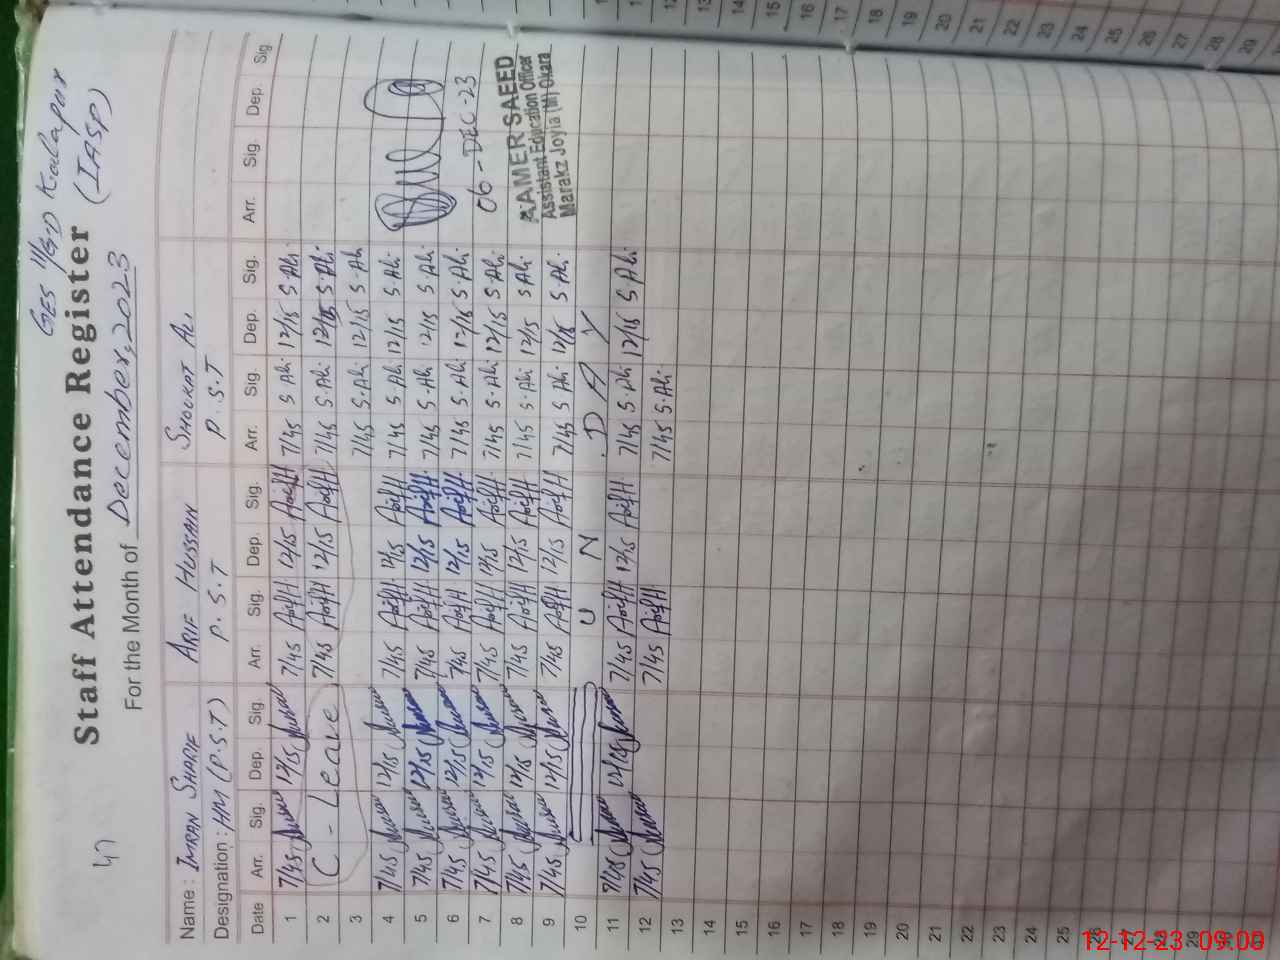 47
GES 11/G.D Kalapar
(IASP)
Staff Attendance Register
For the Month of December, 2023
Name : IMRAN SHARIF ARIF HUSSAIN SHOUKAT ALi
Designation : HM (P.S.T) P.S.T P.S.T
Date Arr. Sig. Dep. Sig. Arr. Sig. Dep. Sig. Arr. Sig. Dep. Sig. Arr. Sig. Dep. Sig.
1 7/45 12/15 7/45 Arif H 12/15 Arif H 7/45 S.Ali 12/15 S.Ali
2 C - Leave 7/45 Arif H 12/15 Arif H 7/45 S.Ali 12/15 S.Ali
3 7/45 S.Ali 12/15 S.Ali
4 7/45 12/15 7/45 Arif H 12/15 Arif H 7/45 S.Ali 12/15 S.Ali
5 7/45 12/15 7/45 Arif H 12/15 Arif H 7/45 S.Ali 12/15 S.Ali
6 7/45 12/15 7/45 Arif H 12/15 Arif H 7/45 S.Ali 12/15 S.Ali
7 7/45 12/15 7/45 Arif H 12/15 Arif H 7/45 S.Ali 12/15 S.Ali
06-DEC-23
8 7/45 12/15 7/45 Arif H 12/15 Arif H 7/45 S.Ali 12/15 S.Ali
AAMER SAEED
Assistant Education Officer
Marakz Joyia (M) Okara
9 7/45 12/15 7/45 Arif H 12/15 Arif H 7/45 S.Ali 12/15 S.Ali
10 S U N D A Y
11 7/45 12/15 7/45 Arif H 12/15 Arif H 7/45 S.Ali 12/15 S.Ali
12 7/45 7/45 Arif H 7/45 S.Ali
13
14
15
16
17
18
19
20
21
22
23
24
25
26
27
28
29
30
31
13
14
15
16
17
18
19
20
21
22
23
24
25
26
27
28
29
12-12-23 09:08